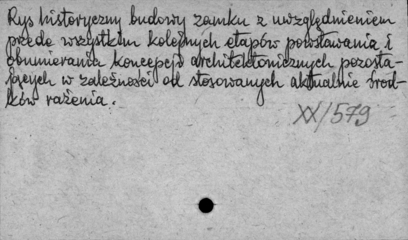 Rys historyczny budowy zamku z uwzględnieniem
przede wszystkim kolejnych etapów powstawania i
obumierania koncepcji architektonicznych pozosta-
jących w zależności od stosowanych aktualnie środ-
ków rażenia.
XX/579